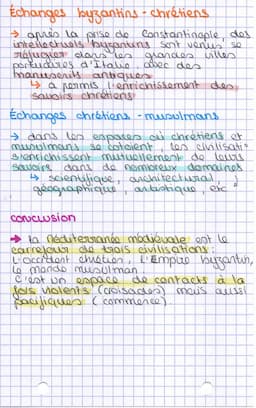 Échanges byzantins - chrétiens
→ après la prise de Constantinople, des
intellectuels byzantins sont venus se
réfugier dans les grandes villes
portuaires d'Italie avec des
manuscrits antiques
↳ a permis l'enrichissement des
savoirs chrétiens
Échanges chrétiens - musulmans
→ dans les espaces où chrétiens et
musulmans se cotoient, les civilisat°
s'enrichissent mutuellement de leurs
savoirs dans de nombreux domaines
↳ scientifique, architectural,
géographique, artistique, etc
conclusion
→ la Méditerranée médiévale est le
carrefour de trois civilisations :
L'occident chrétien, l'Empire byzantin,
le monde musulman.
C'est un espace de contacts à la
fois violents (croisades) mais aussi
pacifiques (commerce).